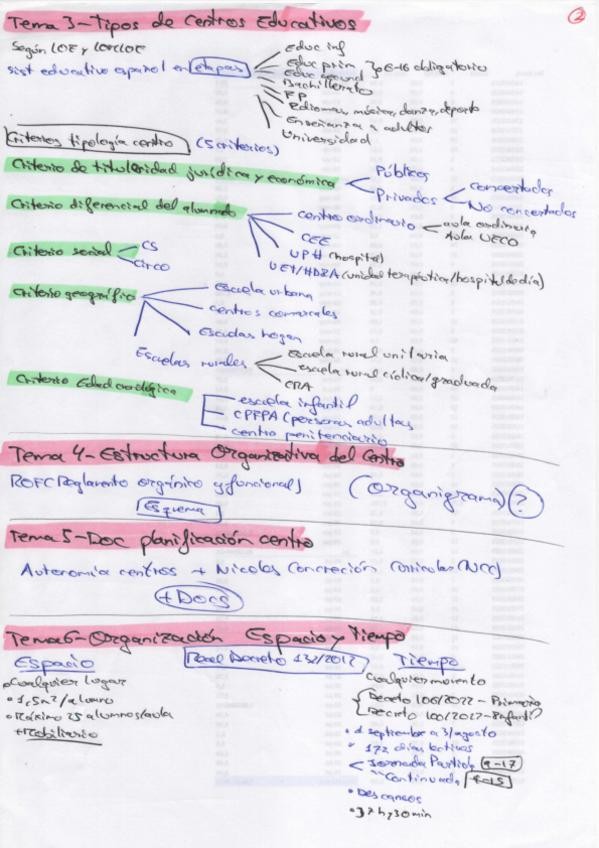 2
Tema 3 - Tipos de Centros Educativos
Según LOE y LOMLOE
sist educativo español en etapas
educ inf
educ prim } 6-16 obligatorio
educ secund
Bachillerato
FP
Idiomas, música, danza, deporte
Enseñanza a adultos
Universidad
Criterios tipología centro (5 criterios)
Criterio de titularidad jurídica y económica
Públicos
Privados
concertados
No concertados
Criterio diferencial del alumnado
centro ordinario
aula ordinaria
Aula UECO
CEE
UPH (hospital)
UET/HDIA (unidad terapéutica/hospital de día)
Criterio social
CS
Circo
Criterio geográfico
escuela urbana
centros comarcales
Escuelas hogar
Escuelas rurales
Escuela rural unitaria
escuela rural cíclica/graduada
CRA
Criterio Edad cronológica
escuela infantil
CPFPA (personas adultas
centro penitenciario
Tema 4 - Estructura Organizativa del Centro
ROFC Reglamento orgánico y funcional)
(Organigrama) ?
Esquema
Tema 5 - Doc planificación centro
Autonomía centros + Niveles Concreción Curricular (NCC)
+ Docs
Tema 6 - Organización Espacio y Tiempo
Espacio
Real Decreto 132/2012
Tiempo
Cualquier lugar
1,5m2/alumno
Máximo 25 alumnos/aula
+ Mobiliario
Cualquier momento
Decreto 106/2022 - Primaria
Decreto 100/2022 - Infantil
1 septiembre a 31 agosto
172 días lectivos
Jornada Partida 9-17
" Continuada
Descansos
37h y 30min